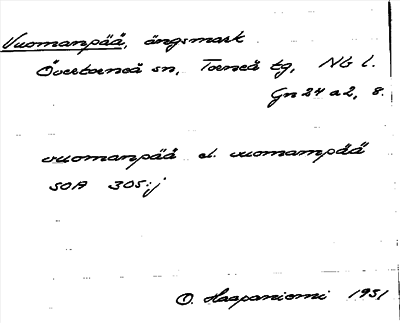 Vuomanpää, ängsmark
Övertorneå sn, Torneå tg, Nb l.
Gn 24 a 2, 8.
vuomanpää el. vuomampää
SOA 305:j
O. Haapaniemi 1931